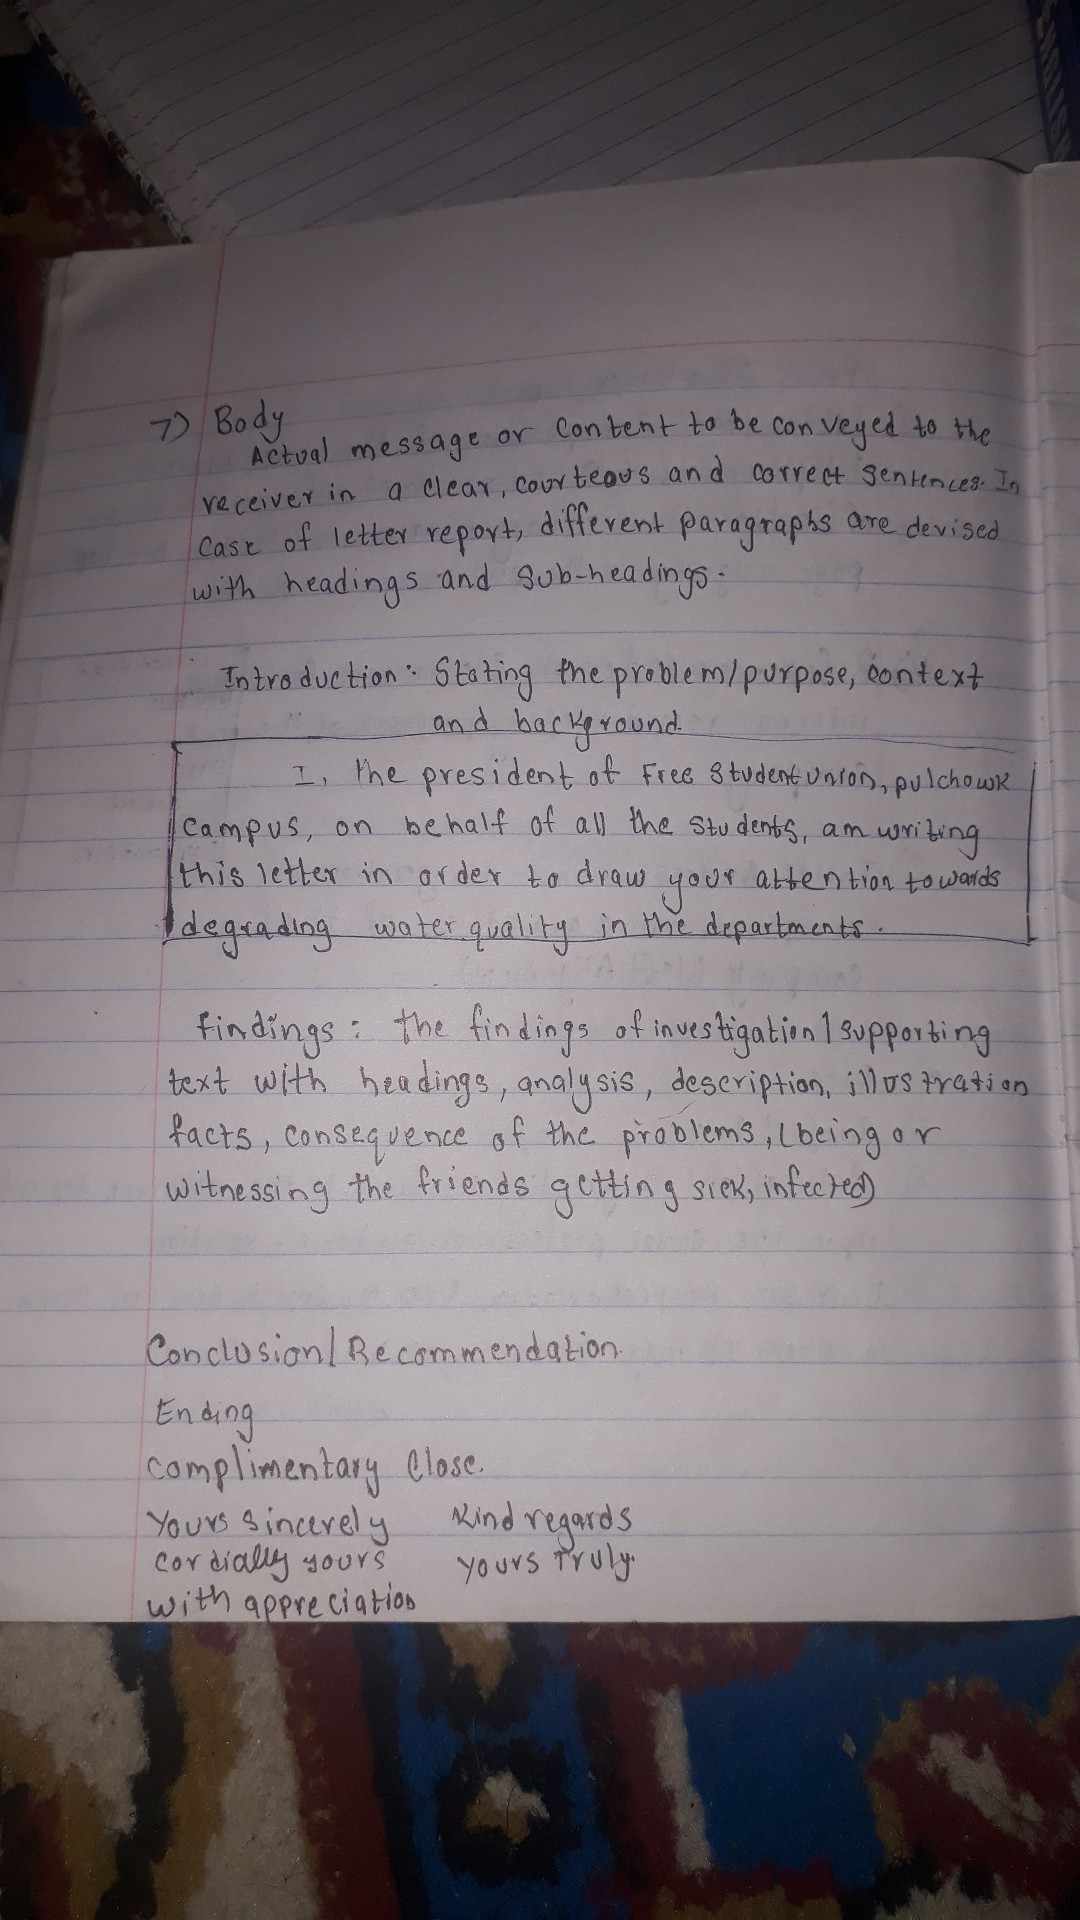 7) Body
Actual message or content to be conveyed to the
receiver in a clear, courteous and correct sentences. In
case of letter report, different paragraphs are devised
with headings and sub-headings.
Introduction: Stating the problem/purpose, context
and background.
I, the president of Free Student union, pulchowk
campus, on behalf of all the students, am writing
this letter in order to draw your attention towards
degrading water quality in the departments.
Findings: the findings of investigation/supporting
text with headings, analysis, description, illustration
facts, consequence of the problems, (being or
witnessing the friends getting sick, infected)
Conclusion/Recommendation.
Ending
complimentary close.
Yours sincerely Kind regards
cordially yours yours Truly.
with appreciation